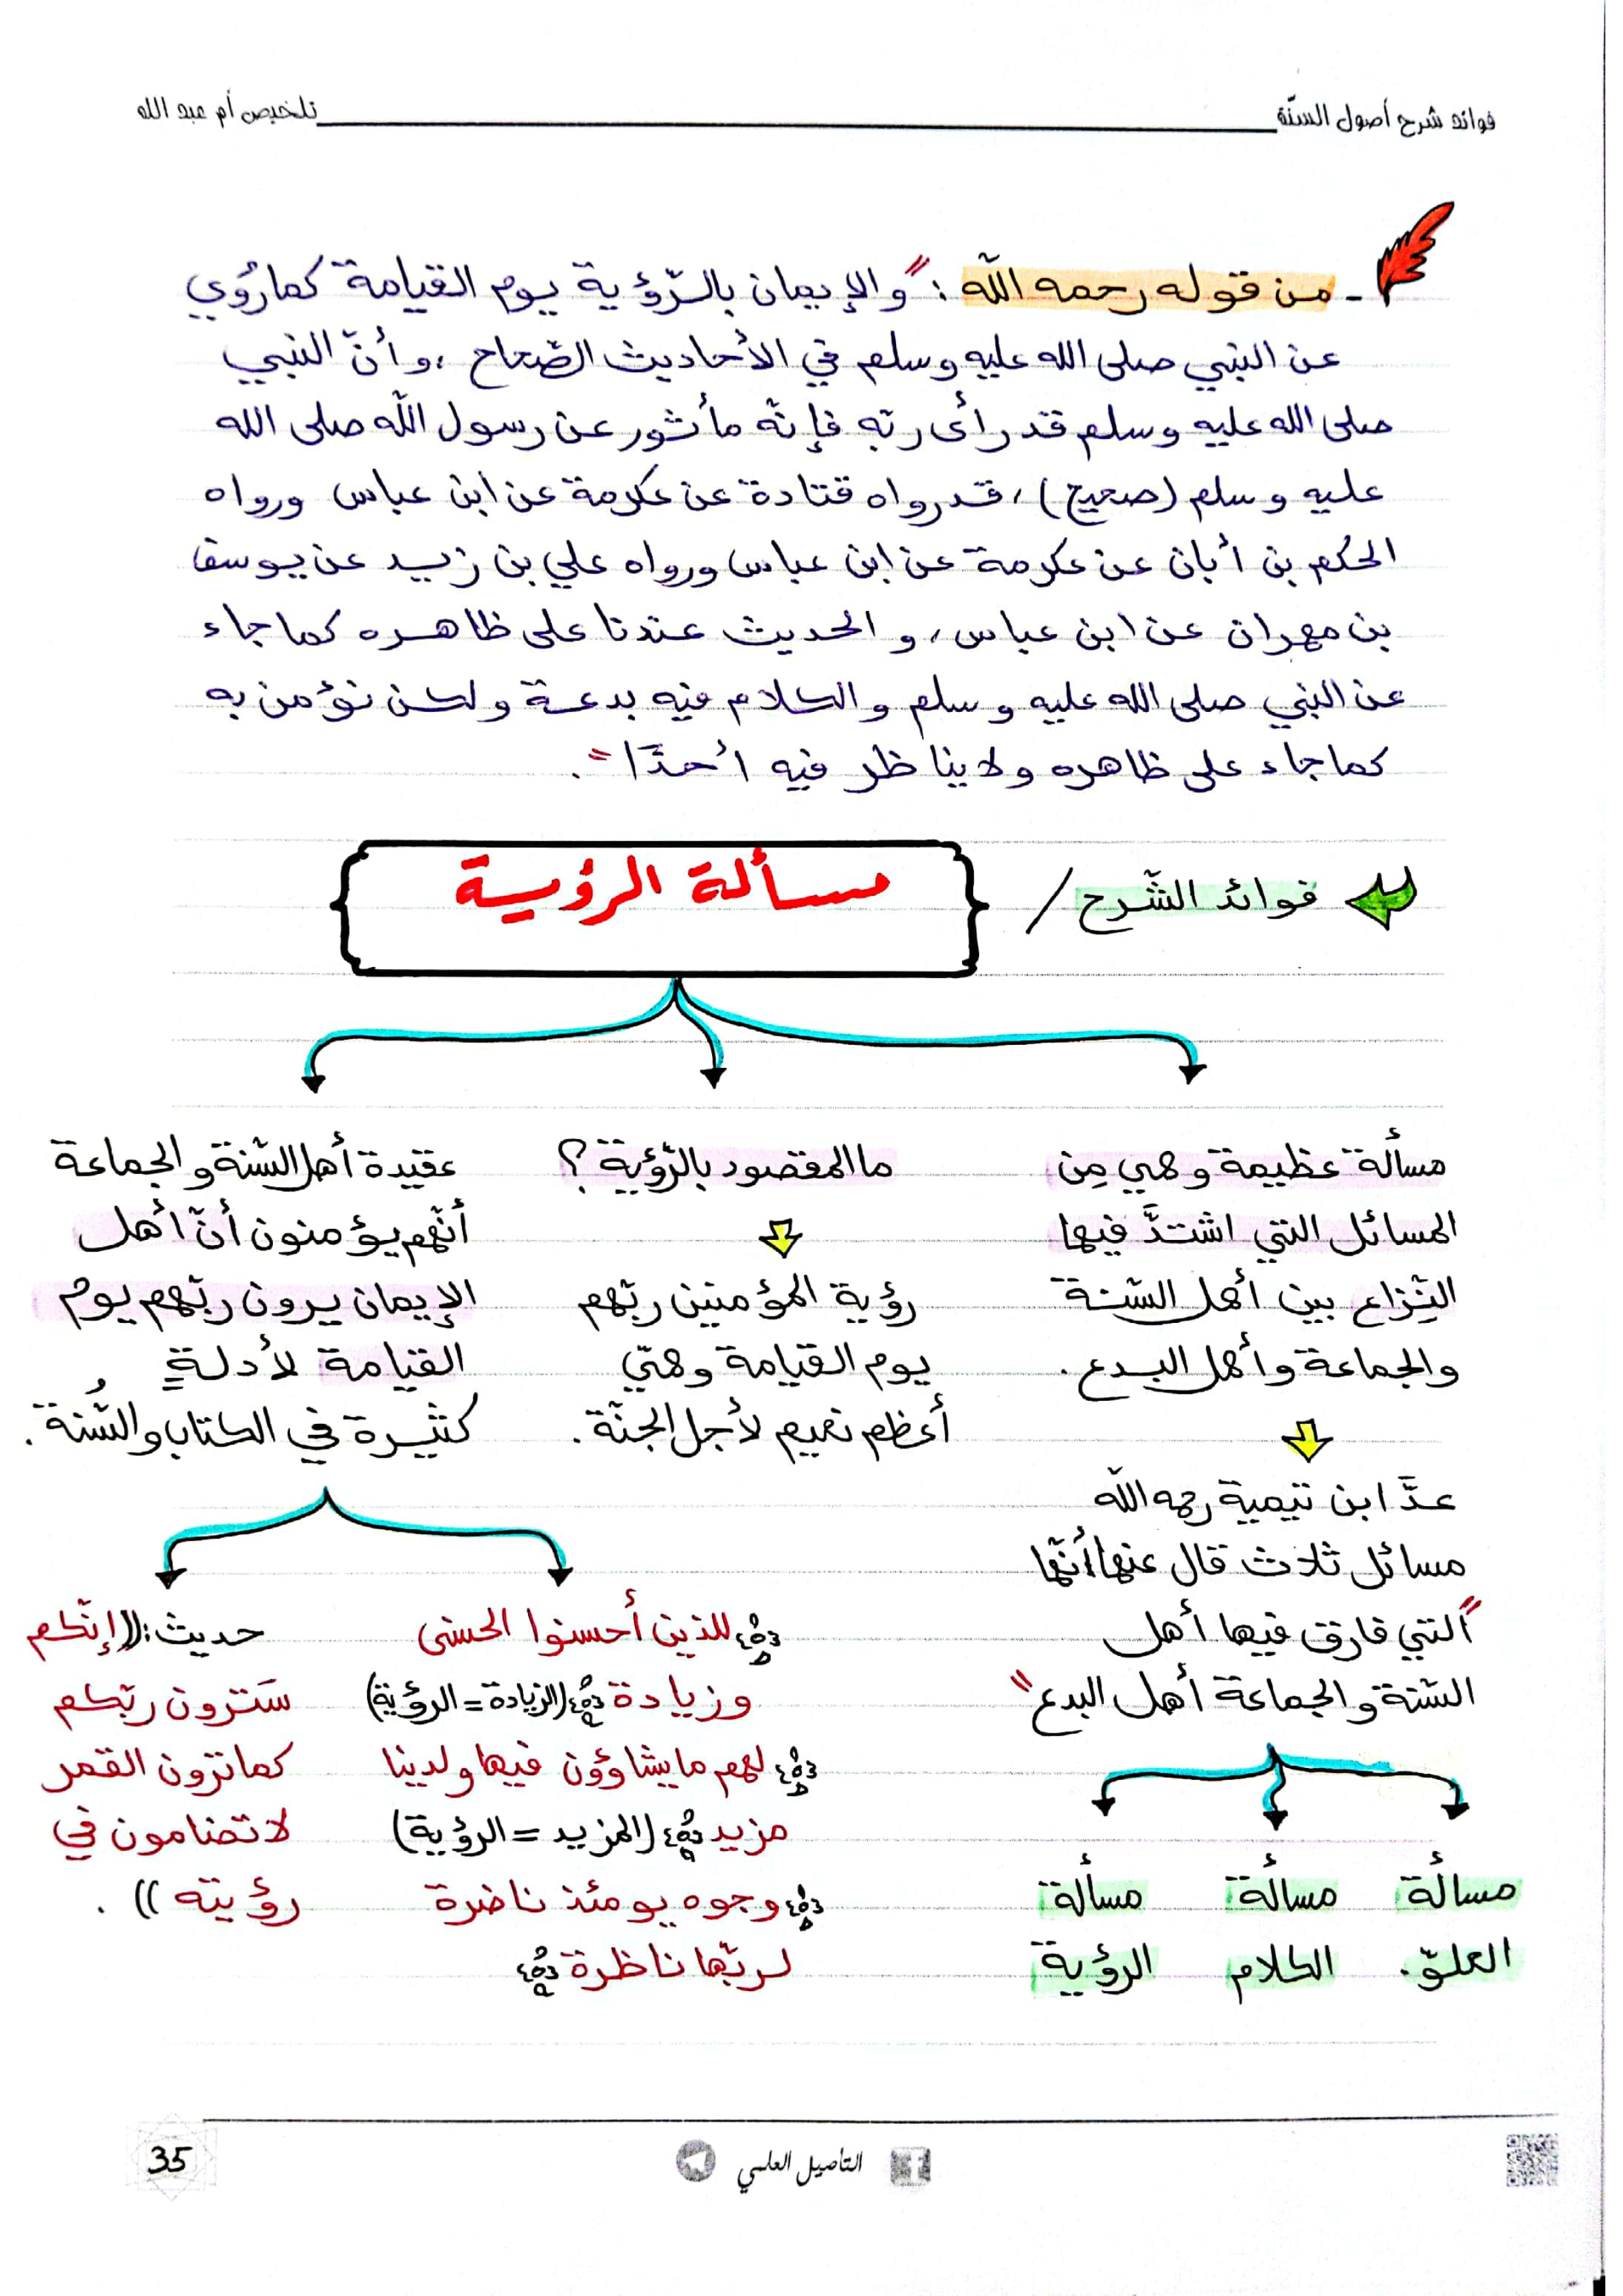 فوائد شرح أصول السنّة
تلخيص أم عبد الله
ـ من قوله رحمه الله : "والإيمان بالرّؤية يوم القيامة كما رُوي
عن النبي صلى الله عليه وسلم في الأحاديث الصّحاح ، وأنّ النبي
صلى الله عليه وسلم قد رأى ربّه فإنّه مأثور عن رسول الله صلى الله
عليه وسلم (صحيح) ، قد رواه قتادة عن عكرمة عن ابن عباس ورواه
الحكم بن أبان عن عكرمة عن ابن عباس ورواه علي بن زيد عن يوسف
بن مهران عن ابن عباس ، والحديث عندنا على ظاهره كما جاء
عن النبي صلى الله عليه وسلم والكلام فيه بدعة ولكن نؤمن به
كما جاء على ظاهره ولا يناظر فيه أحدًا" .
فوائد الشّرح /
مسألة الرؤية
مسألة عظيمة وهي مِن
المسائل التي اشتدَّ فيها
النِّزاع بين أهل السّنة
والجماعة وأهل البدع .
عدَّ ابن تيمية رحمه الله
مسائل ثلاث قال عنها أنّها
"التي فارق فيها أهل
السّنة والجماعة أهل البدع"
مسألة
العلوّ .
مسألة
الكلام
مسألة
الرؤية
ما المقصود بالرّؤية ؟
رؤية المؤمنين ربّهم
يوم القيامة وهيّ
أعظم نعيم لأجل الجنّة .
عقيدة أهل السّنة والجماعة
أنّهم يؤمنون أنّ أهل
الإيمان يرون ربّهم يوم
القيامة لأدلةٍ
كثيرة في الكتاب والسُّنة .
﴿للذين أحسنوا الحسنى
وزيادة﴾ (الزيادة = الرؤية)
﴿لهم ما يشاؤون فيها ولدينا
مزيد﴾ (المزيد = الرؤية)
﴿وجوه يومئذ ناضرة
لربّها ناظرة﴾
حديث : ((إنّكم
سَترون ربّكم
كما ترون القمر
لا تضامون في
رؤيته )) .
التأصيل العلمي
35